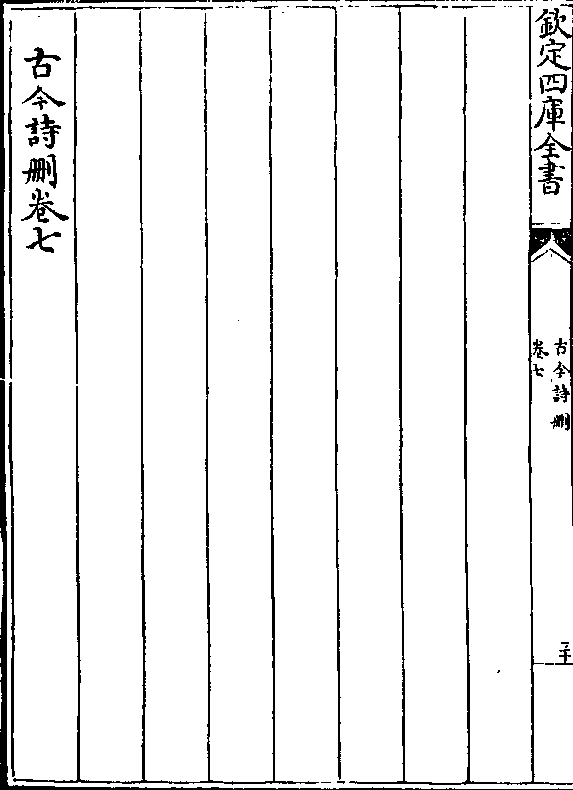 欽定四庫全書
古今詩刪
卷七
二十
古今詩刪卷七